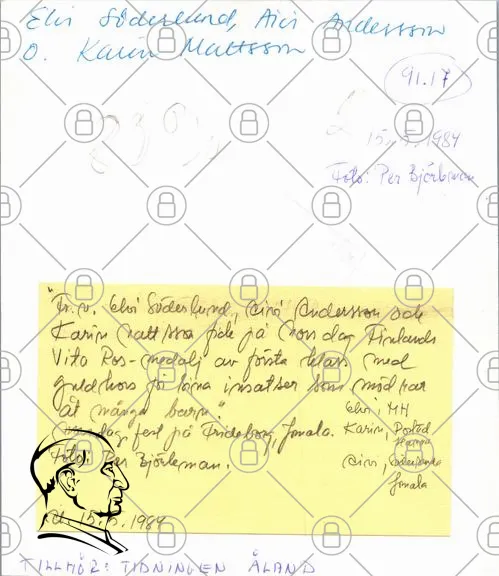 Elvi Söderlund, Aivi Andersson
o. Karin Mattsson
91.17
15.5.1984
Foto: Per Björkman
"Fr.v. Elvi Söderlund, Aivi Andersson och
Karin Mattsson fick på mors dag Finlands
Vita Ros-medalj av första klass med
guldkors för sina insatser som mödrar
åt många barn."
dag fest på Fridebo, Jomala.
Foto: Per Björkman.
Elvi, MH
Karin,
Aivi, Söderunda
Jomala
15.5.1984
TILLHÖR: TIDNINGEN ÅLAND